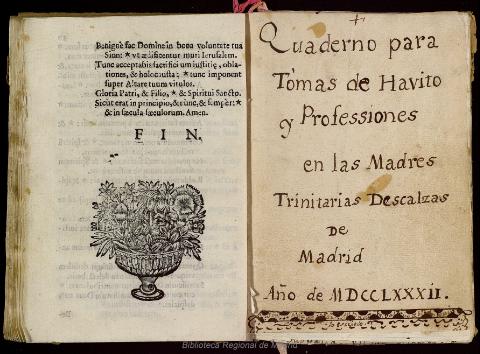 Benignè fac Domine in bona voluntate tua
Sion: * vt ædificentur muri Ierusalem.
Tunc acceptabis sacrificium iustitiæ, obla-
tiones, & holocausta; * tunc imponent
super Altare tuum vitulos.
Gloria Patri, & Filio, * & Spiritui Sancto.
Sicut erat in principio, & nunc, & semper: *
& in sæcula sæculorum. Amen.
FIN.
Quaderno para
Tómas de Havito
y Professiones
en las Madres
Trinitarias Descalzas
De
Madrid
Año de MDCCLXXXII.
Biblioteca Regional de Madrid